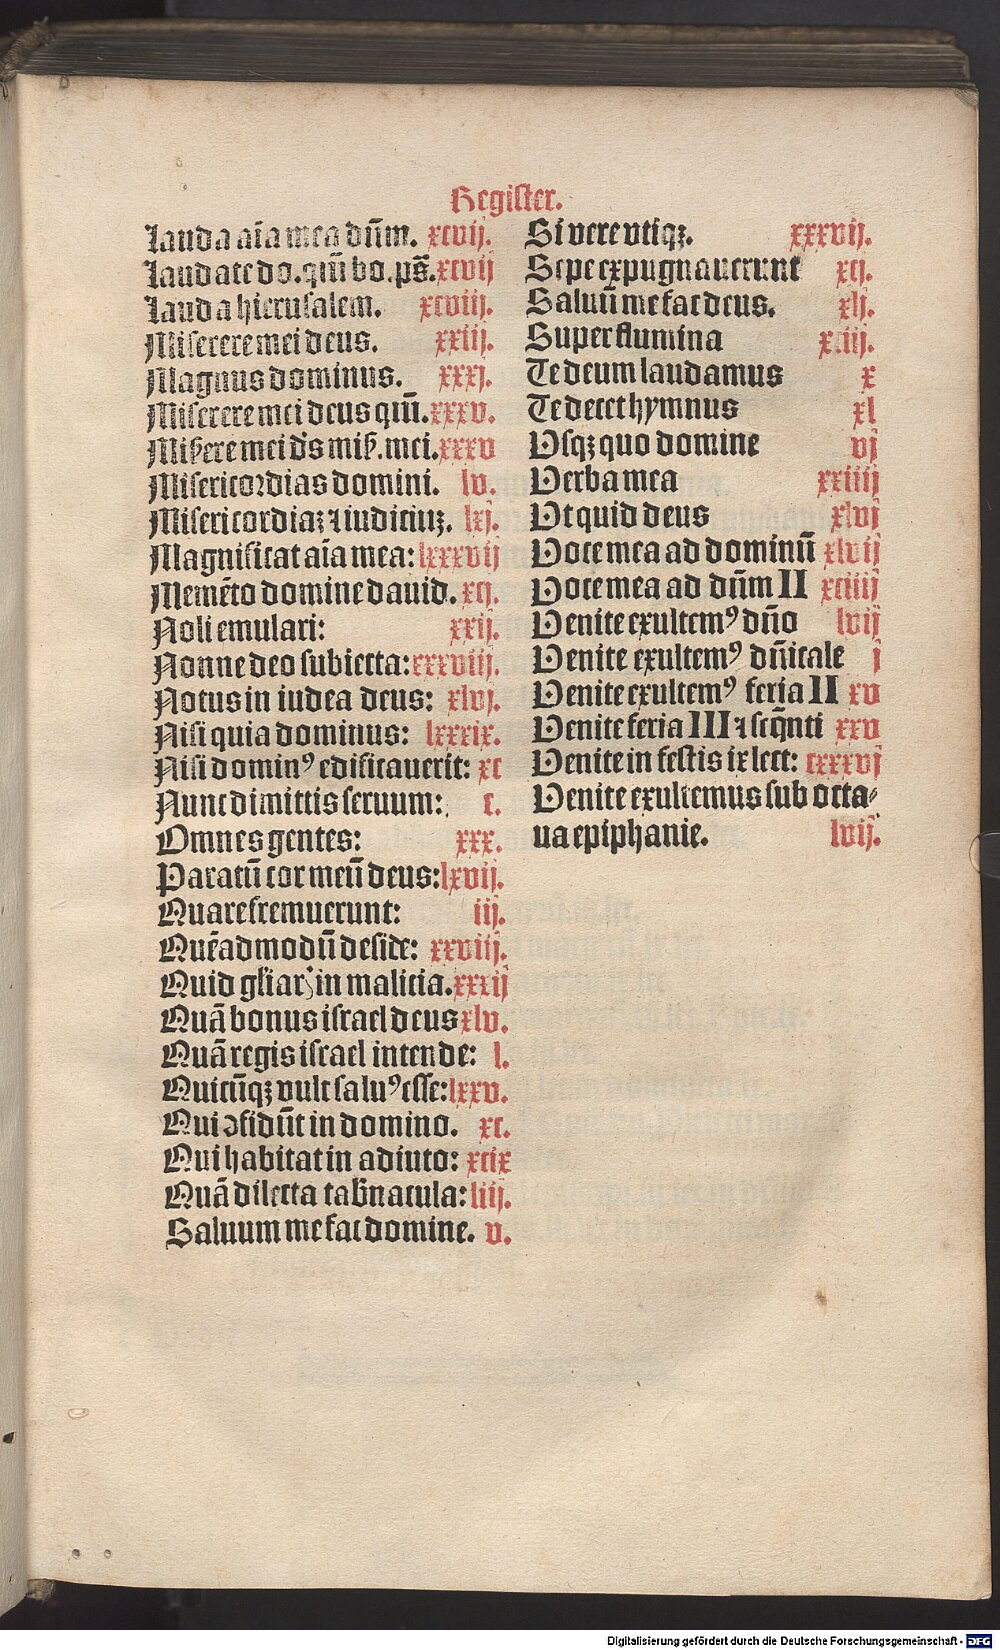 Register.
Lauda aīa mea dn̄m. xcvij.
Laudate do. qm̄ bo. ps̄. xcvij
Lauda hierusalem. xcviij.
Miserere mei deus. xxiij.
Magnus dominus. xxxj.
Miserere mei deus qm̄. xxxv.
Miserere mei ds̄ mis. mei. xxxv
Misericordias domini. lv.
Misericordiaꝫ ⁊ iudiciuꝫ. lxj.
Magnificat aīa mea: lxxxvij
Memēto domine dauid. xcj.
Noli emulari: xxij.
Nonne deo subiecta: xxxviij.
Notus in iudea deus: xlvj.
Nisi quia dominus: lxxxix.
Nisi dominꝰ edificauerit: xc
Nunc dimittis seruum: c.
Omnes gentes: xxx.
Paratū cor meū deus: lxvij.
Quare fremuerunt: iij.
Quēadmodū deside: xxviij.
Quid gl̄iar in malicia. xxxij
Quā bonus israel deus xlv.
Quā regis israel intende: l.
Quicūqꝫ vult saluꝰ esse: lxxv.
Qui ↄfidūt in domino. xc.
Qui habitat in adiuto: xcix
Quā dilecta tab̄nacula: liij.
Saluum me fac domine. v.
Si vere vtiqꝫ. xxxvij.
Sepe expugnauerunt xcj.
Saluū me fac deus. xlj.
Super flumina xciij.
Te deum laudamus x
Te decet hymnus xl
Vsqꝫ quo domine vj
Verba mea xxiiij
Vt quid deus xlvj
Voce mea ad dominū xlvij
Voce mea ad dn̄m II xciiij
Venite exultemꝰ dn̄o lvij
Venite exultemꝰ dn̄icale j
Venite exultemꝰ feria II xv
Venite feria III ⁊ seq̄nti xxv
Venite in festis ix lect: cxxxvj
Venite exultemus sub octa⸗
ua epiphanie. lvij.
Digitalisierung gefördert durch die Deutsche Forschungsgemeinschaft - DFG